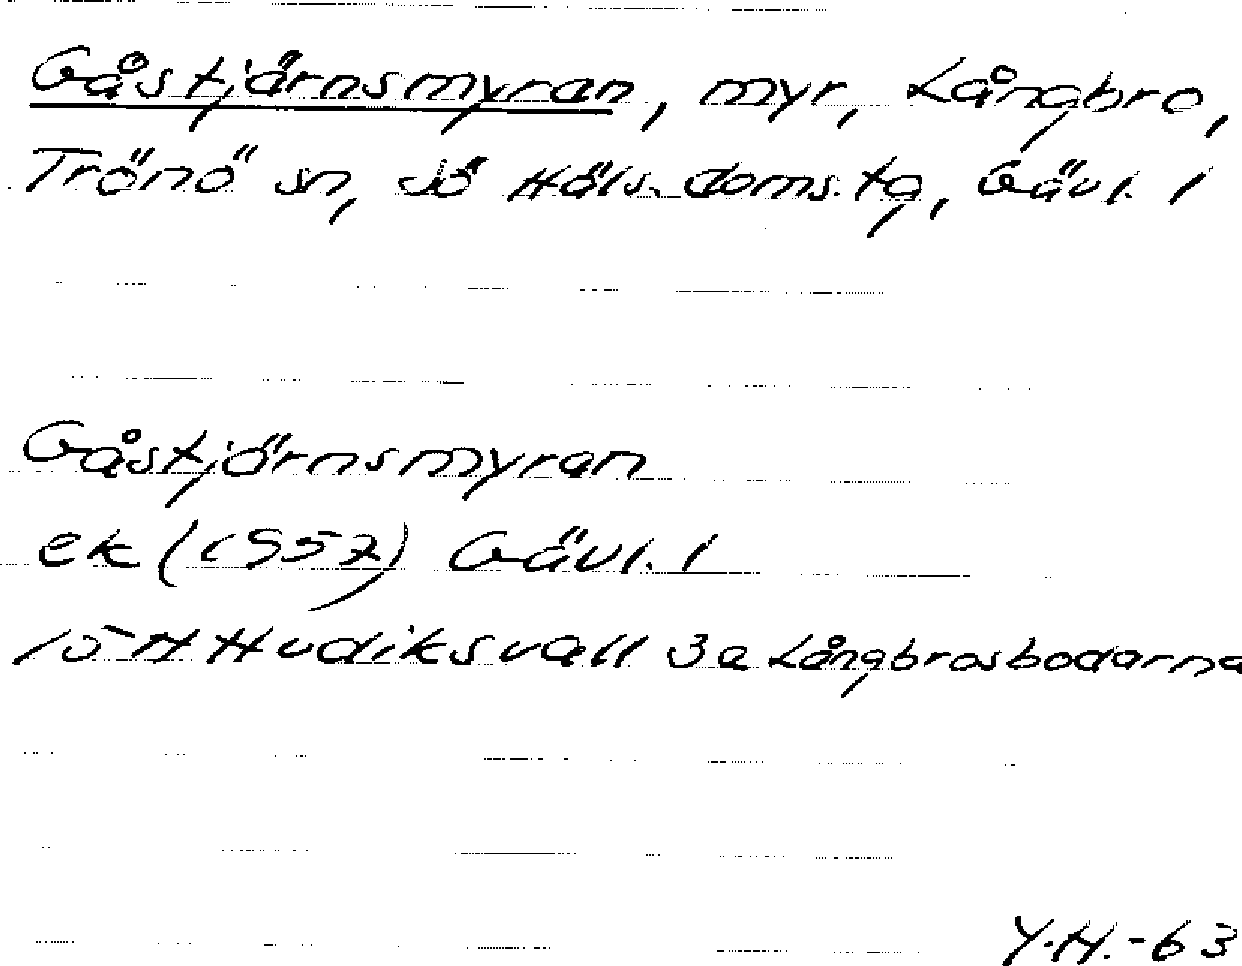 Gåstjärnsmyran, myr, Långbro,
Trönö sn, sö Häls. doms. tg, Gävl. l
Gåstjärnsmyran
ek (1957) Gävl. l
15 H Hudiksvall 3a Långbrosbodarna
Y.H.-63